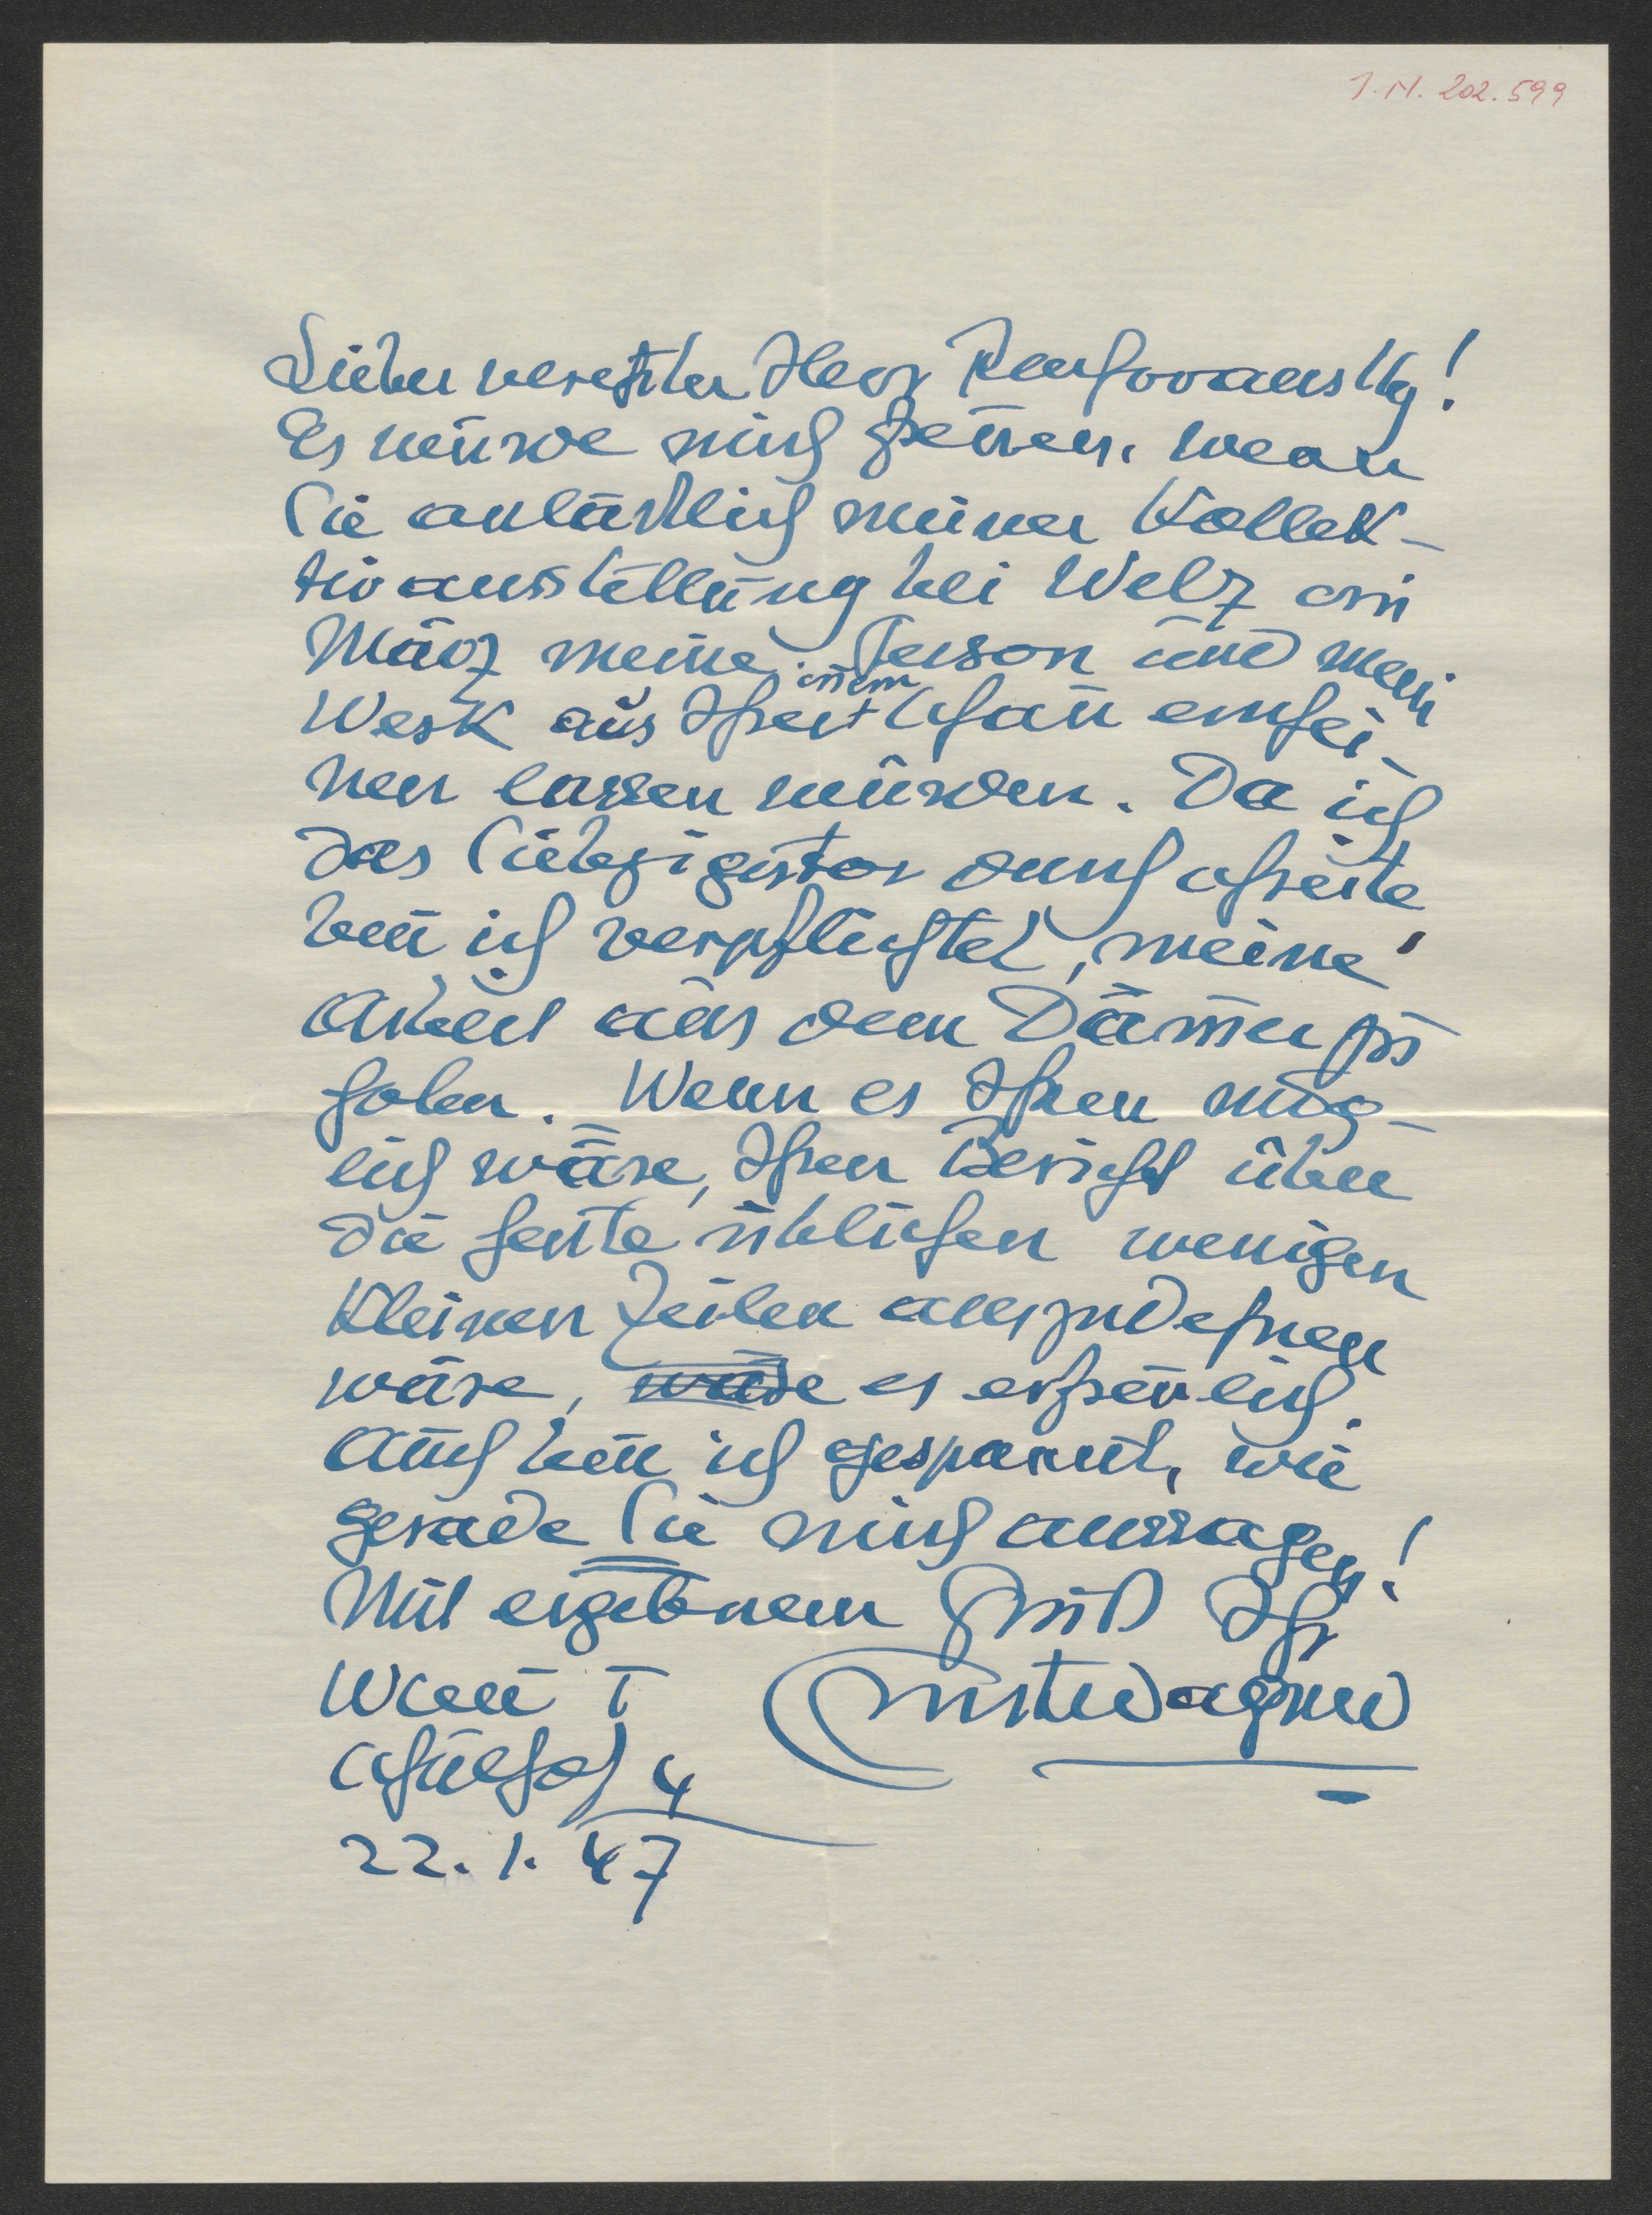 I.N. 202.599
Lieber verehrter Herr
Es würde mich freuen, wenn
Sie anläßlich meiner Kollek-
tivausstellung bei Welz im
März meine Person und mein
Werk aus Ihrer Schau erschei-
nen lassen würden. Da ich
das Siebzigertor durchschreite
bin ich verpflichtet, meine
Arbeit aus dem Dämmer zu
holen. Wenn es Ihnen mög-
lich wäre, Ihren Bericht über
die heute üblichen wenigen
kleinen Zeilen auszudehnen
wäre, es erfreulich.
Auch bin ich gespannt, wie
gerade Sie mich aussagen!
Mit ergebnem Gruß Ihr
Wien I
Schulhof 4
22.1.47